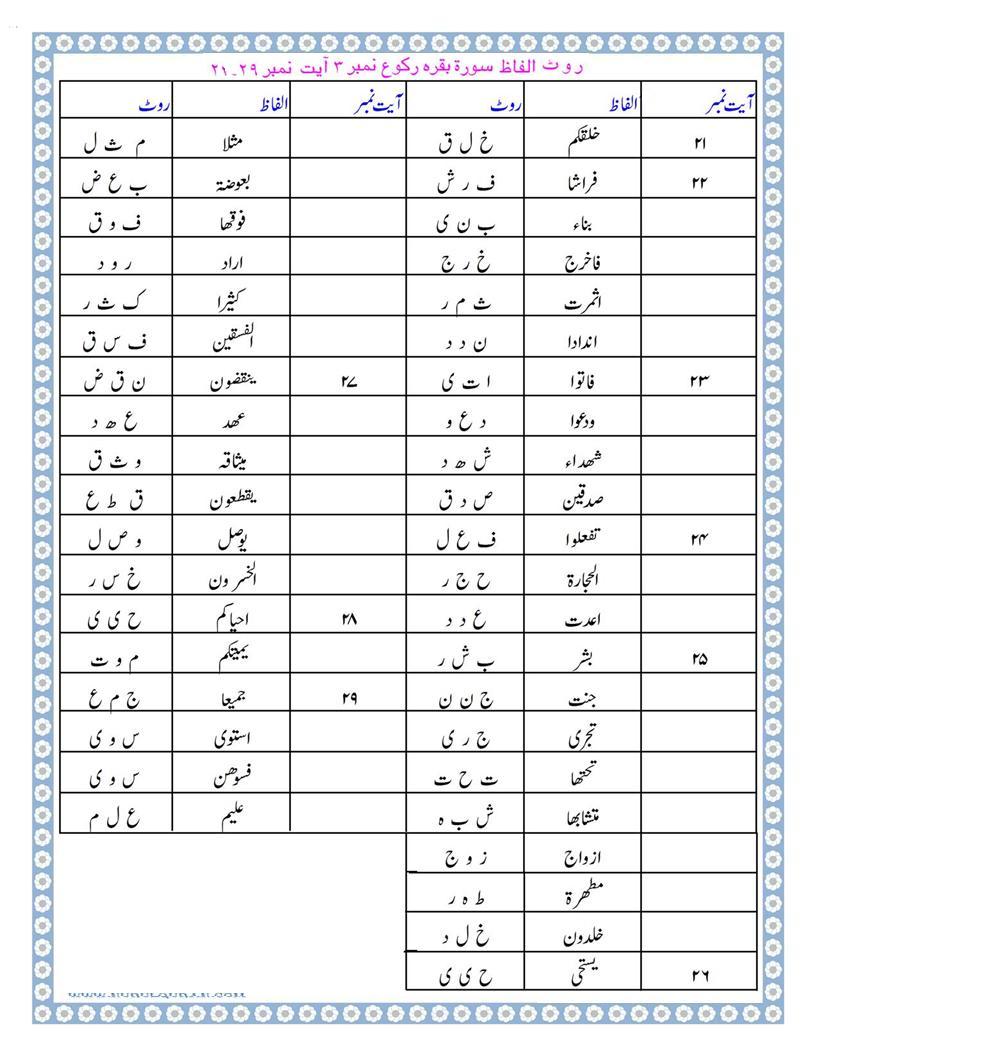 روٹ الفاظ سورۃ بقرہ رکوع نمبر ۳ آیت نمبر ۲۹۔۲۱
آیت نمبر الفاظ روٹ آیت نمبر الفاظ روٹ
۲۱ خلقکم خ ل ق مثلا م ث ل
۲۲ فراشا ف ر ش بعوضۃ ب ع ض
بناء ب ن ی فوقھا ف و ق
فاخرج خ ر ج اراد ر و د
اثمرت ث م ر کثیرا ک ث ر
اندادا ن د د الفسقین ف س ق
۲۳ فاتوا ا ت ی ۲۷ ینقضون ن ق ض
ودعوا د ع و عھد ع ھ د
شھداء ش ھ د میثاقہ و ث ق
صدقین ص د ق یقطعون ق ط ع
۲۴ تفعلوا ف ع ل یوصل و ص ل
الحجارۃ ح ج ر الخسرون خ س ر
اعدت ع د د ۲۸ احیاکم ح ی ی
۲۵ بشر ب ش ر یمیتکم م و ت
جنت ج ن ن ۲۹ جمیعا ج م ع
تجری ج ر ی استوی س و ی
تحتھا ت ح ت فسوھن س و ی
متشابھا ش ب ہ علیم ع ل م
ازواج ز و ج
مطھرۃ ط ہ ر
خلدون خ ل د
۲۶ یستحی ح ی ی